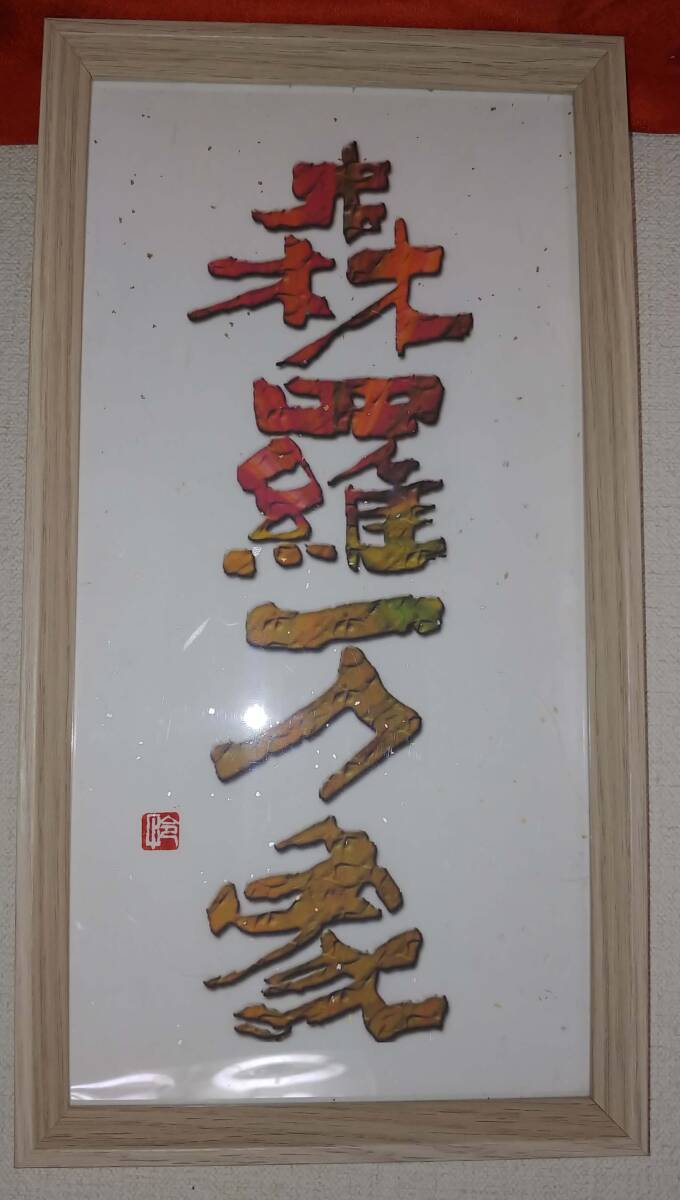 森羅万象
怜